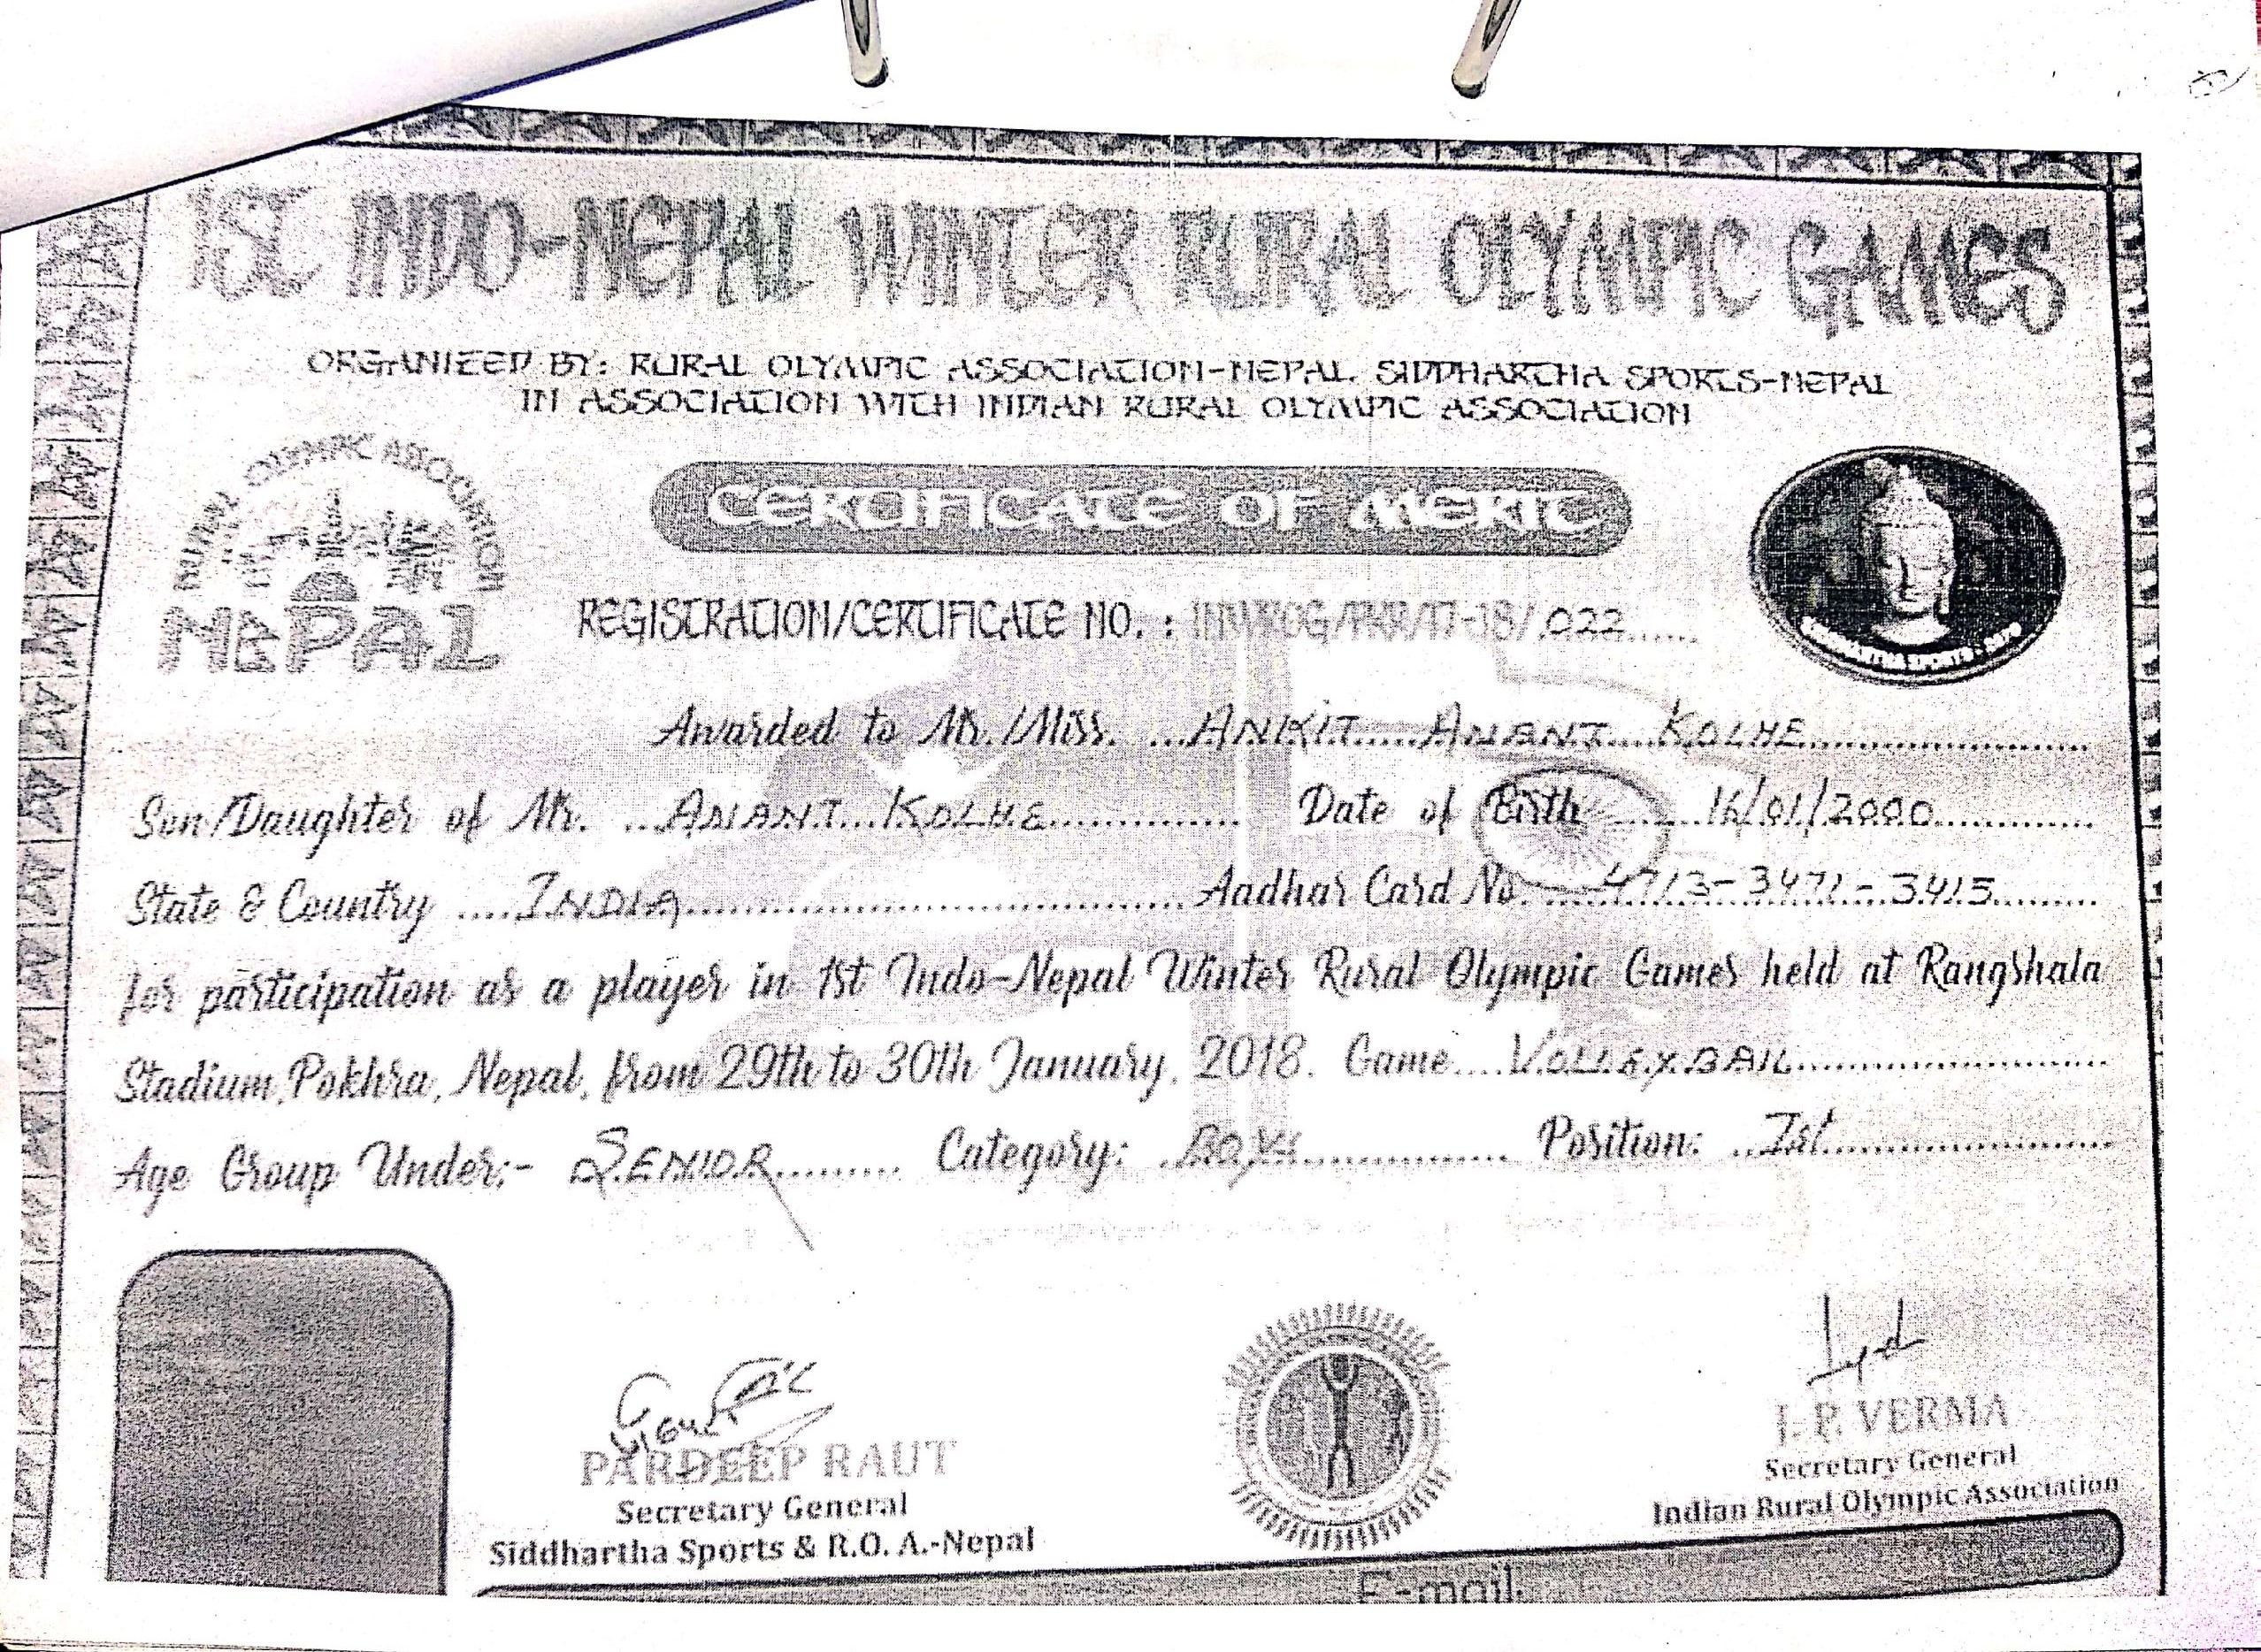 1ST INDO-NEPAL WINTER RURAL OLYMPIC GAMES
ORGANIZED BY: RURAL OLYMPIC ASSOCIATION-NEPAL, SIDDHARTHA SPORTS-NEPAL
IN ASSOCIATION WITH INDIAN RURAL OLYMPIC ASSOCIATION
RURAL OLYMPIC ASSOCIATION
NEPAL
CERTIFICATE OF MERIT
REGISTRATION/CERTIFICATE NO. : INWROG/PKR/17-18/.022......
Awarded to Mr./Miss. ANKIT ANANT KOLHE
Son/Daughter of Mr. ANANT KOLHE Date of Birth 16/01/2000
State & Country INDIA Aadhar Card No. 4713-3471-3415
for participation as a player in 1st Indo-Nepal Winter Rural Olympic Games held at Rangshala
Stadium, Pokhra, Nepal, from 29th to 30th January, 2018. Game VOLLEYBALL
Age Group Under:- SENIOR Category: BOYS Position: Ist
PARDEEP RAUT
Secretary General
Siddhartha Sports & R.O. A.-Nepal
J. P. VERMA
Secretary General
Indian Rural Olympic Association
E-mail: